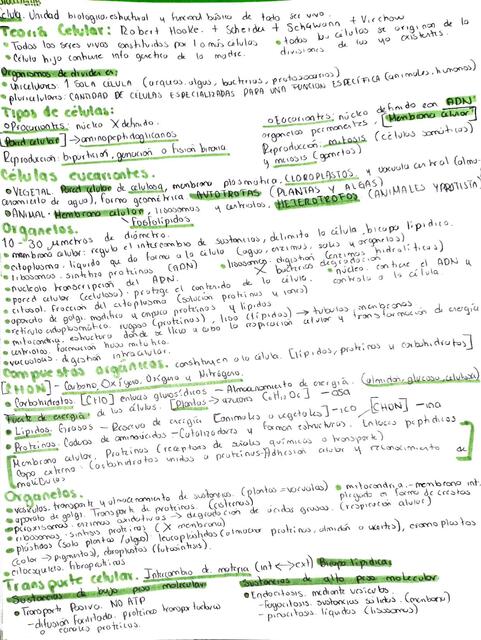 Célula. Unidad biológica, estructural y funcional básica de todo ser vivo.
Teoría Celular: Robert Hooke + Schleiden + Schwann + Virchow
• Todos los seres vivos constituidos por 1 o más células
• todas las células se originan de la divisiones de las ya existentes.
• Célula hija contiene info genética de la madre.
Organismos se dividen en:
• Unicelulares: 1 SOLA CÉLULA (arqueas, algas, bacterias, protozoarios)
• pluricelulares: CANTIDAD DE CÉLULAS ESPECIALIZADAS PARA UNA FUNCIÓN ESPECÍFICA (animales, humanos)
Tipos de células:
• Procariontes: núcleo X definido.
[Pared celular] → aminopeptidoglicanos
Reproducción: bipartición, gemación o fisión binaria
• Eucariontes: núcleo definido con ADN
organelos permanentes, [Membrana celular]
Reproducción: mitosis (células somáticas)
y meiosis (gametos)
Células eucariontes.
• VEGETAL. Pared celular de celulosa, membrana plasmática, CLOROPLASTOS y vacuola central (almacenamiento de agua), forma geométrica AUTÓTROFAS (PLANTAS Y ALGAS)
• ANIMAL. Membrana celular, lisosomas y centriolos, HETERÓTROFOS (ANIMALES Y PROTISTA)
Fosfolípidos
Organelos.
10 - 30 µmetros de diámetro.
• membrana celular: regula el intercambio de sustancias, delimita la célula, bicapa lipídica.
• citoplasma: líquido que da forma a la célula (agua, enzimas, sales y organelos)
• ribosomas: sintetiza proteínas (ADN)
• lisosomas: digestión (enzimas hidrolíticas)
X bacterias degradación
• nucleolo transcripción del ADN.
• núcleo: contiene el ADN y controla a la célula
• pared celular (celulosa): protege el contenido de la célula.
• citosol: fracción del citoplasma (solución proteínas y iones)
• aparato de golgi: modifica y empaca proteínas y lípidos
• retículo endoplasmático: rugoso (proteínas), liso (lípidos) → túbulos, membranas
• mitocondria: estructura donde se lleva a cabo la respiración celular y transformación de energía
• centriolos: formación huso mitótico.
• vacuolas: digestión intracelular.
Compuestos orgánicos. constituyen a la célula. [lípidos, proteínas y carbohidratos]
[CHON] - Carbono, Oxígeno, Hidrógeno y Nitrógeno.
• Carbohidratos: [CHO] enlaces glucosídicos - Almacenamiento de energía. (almidón, glucosa, celulosa)
Fuente de energía de las células. [Plantas] → azúcares C6H12O6 - osa
• Lípidos: Grasas - Reserva de energía [animales o vegetales] - ico [CHON] - ina
• Proteínas: Cadenas de aminoácidos - Catalizadores y forman estructuras. Enlaces peptídicos
Membrana celular. Proteínas (receptores de señales químicas o transporte)
Capa externa: Carbohidratos unidos a proteínas - Adhesión celular y reconocimiento de moléculas
Organelos.
• vesículas: transporte y almacenamiento de sustancias. (plantas = vacuolas)
• mitocondria - membrana int. plegada en forma de crestas (respiración celular)
• aparato de golgi. Transporte de proteínas. (cisternas)
• peroxisomas: enzimas oxidativas → degradación de ácidos grasos.
• ribosomas: síntesis proteínas (X membrana)
• plástidos (solo plantas/algas) leucoplástidos (almacenar proteínas, almidón o aceite), cromoplastos (color → pigmentos), cloroplastos (fotosíntesis).
• citoesqueleto: fibroproteínas
Transporte celular. Intercambio de materia (int ↔ ext) Bicapa lipídica
Sustancias de bajo peso molecular
• Transporte Pasivo. NO ATP
- difusión facilitada. Proteína transportadora
o canales proteicos.
Sustancias de alto peso molecular
• Endocitosis. mediante vesículas
- Fagocitosis: sustancias sólidas (membrana)
- pinocitosis: líquidos (lisosomas)